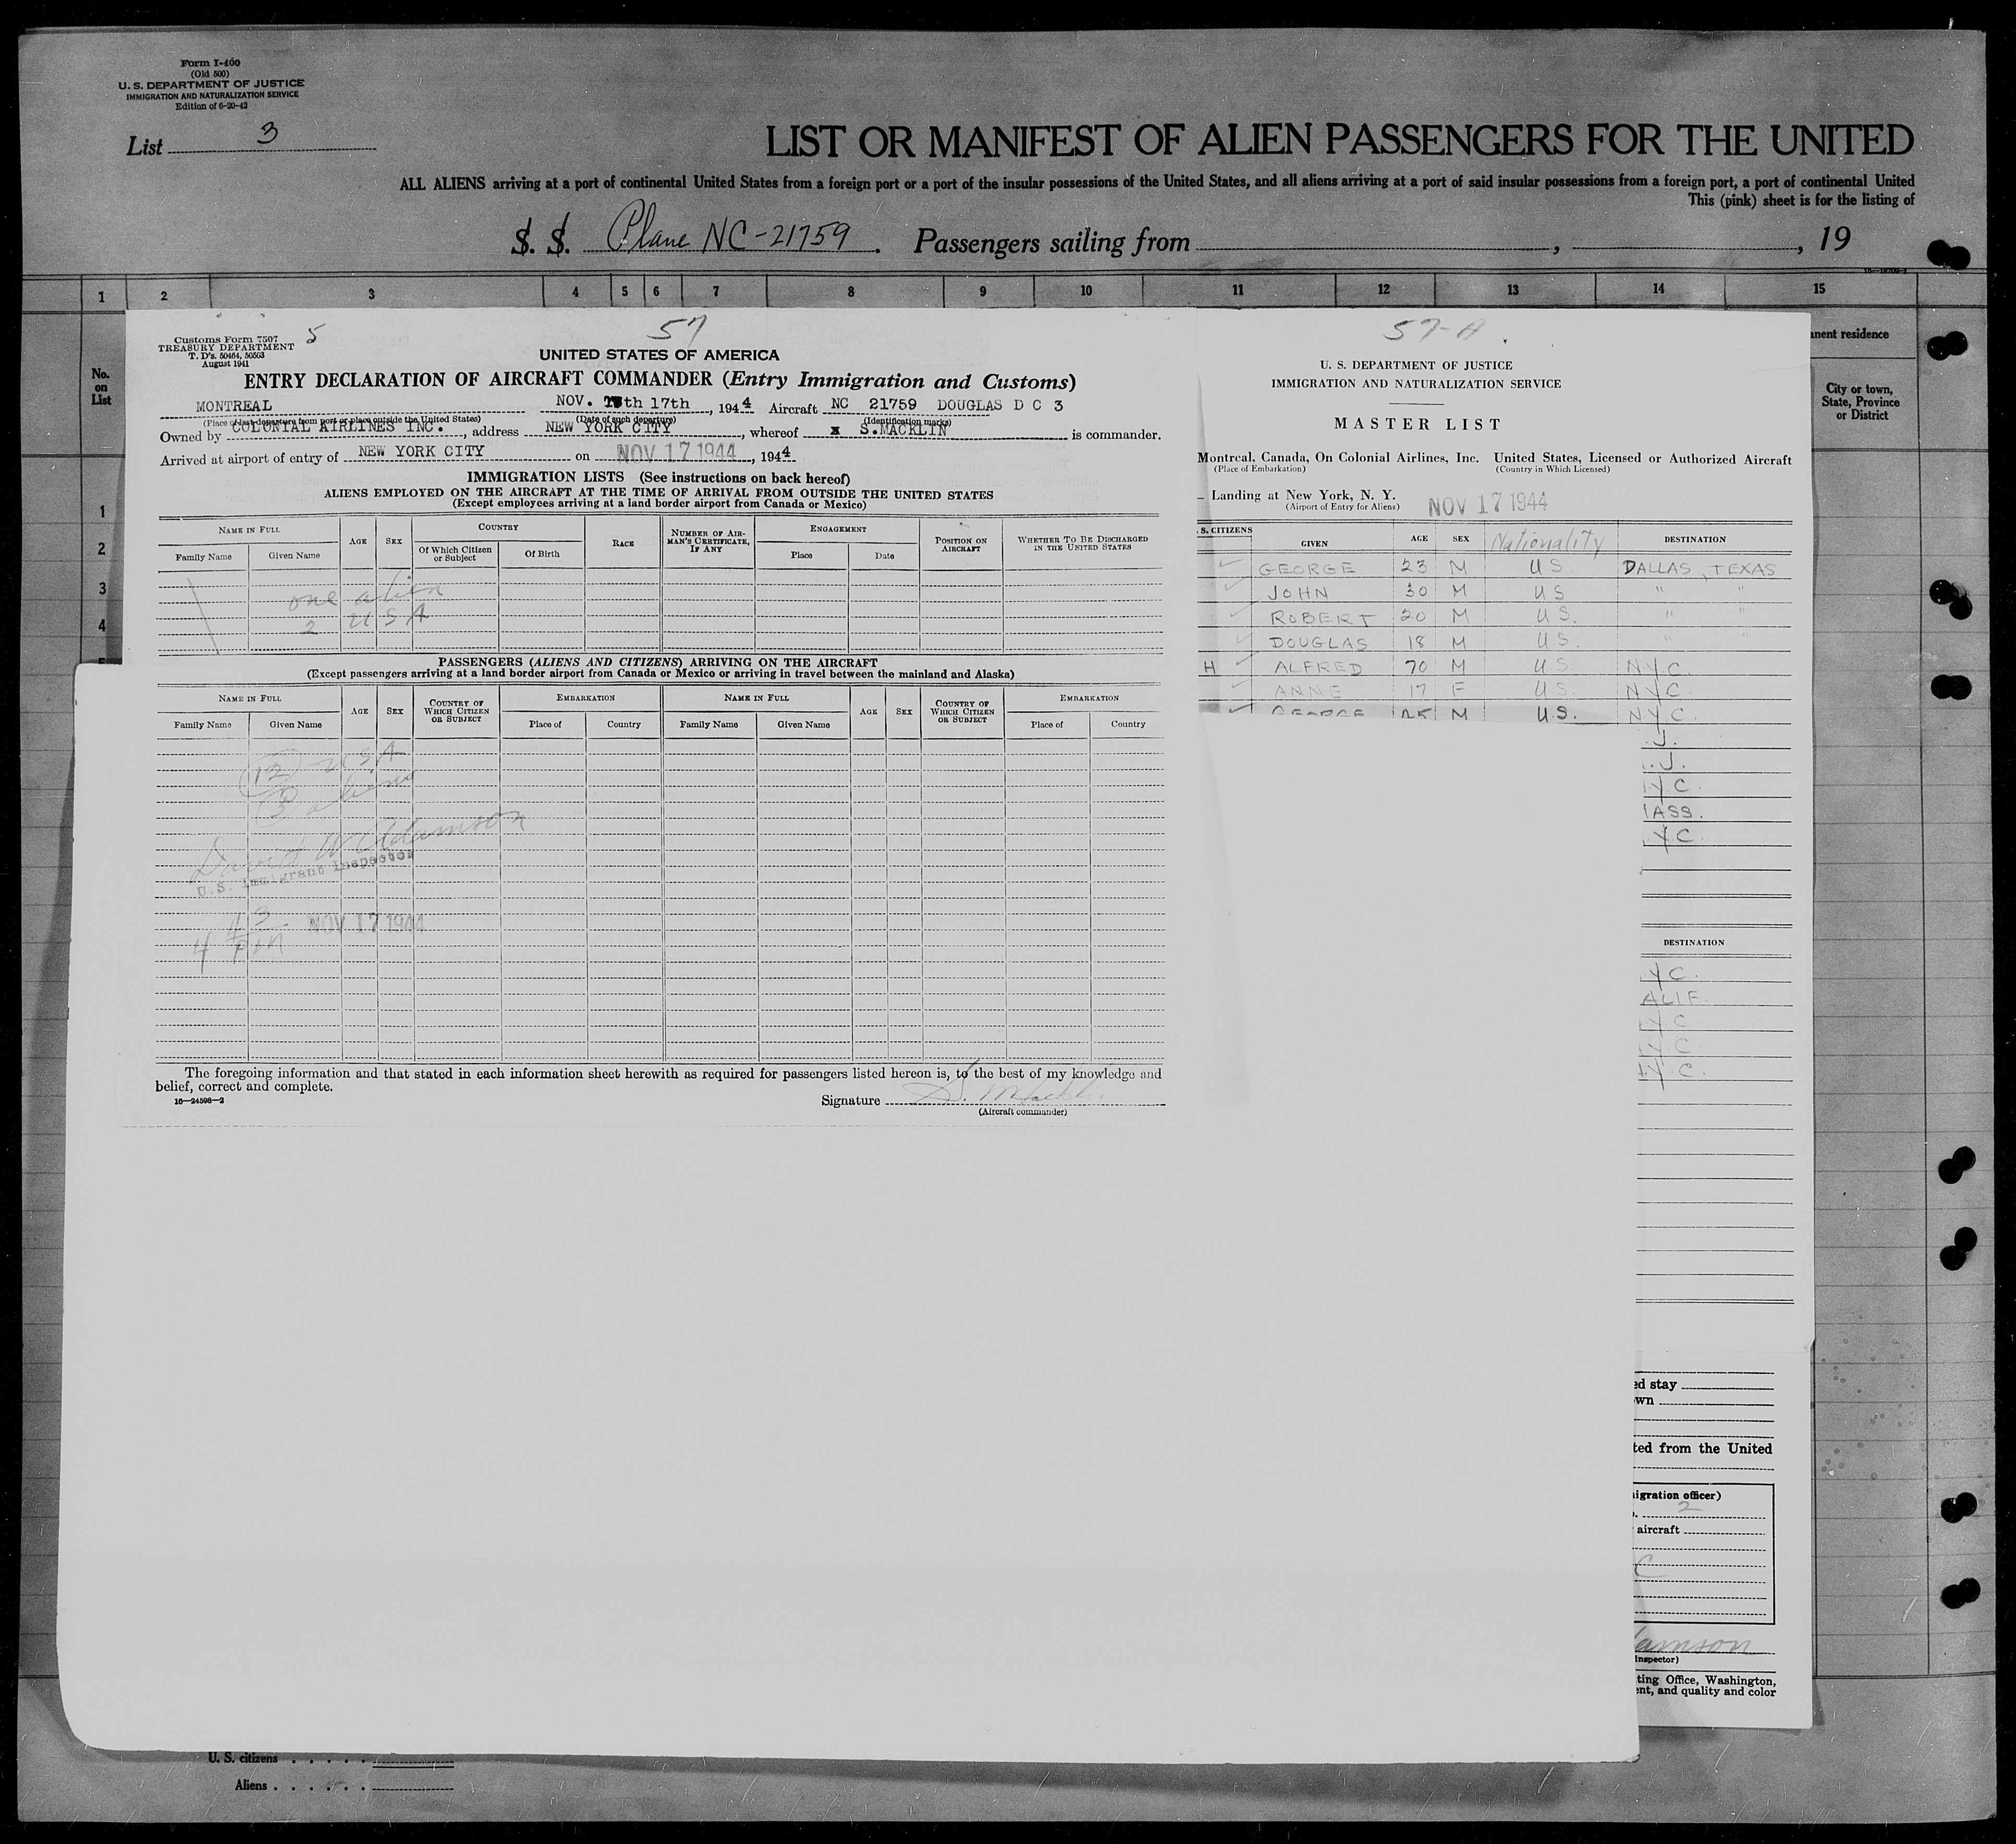 Form I-400
(Old 500)
U. S. DEPARTMENT OF JUSTICE
IMMIGRATION AND NATURALIZATION SERVICE
Edition of 6-20-42
List 3
LIST OR MANIFEST OF ALIEN PASSENGERS FOR THE UNITED
ALL ALIENS arriving at a port of continental United States from a foreign port or a port of the insular possessions of the United States, and all aliens arriving at a port of said insular possessions from a foreign port, a port of continental United
This (pink) sheet is for the listing of
S. S. Plane NC-21759. Passengers sailing from , , 19
1 2 3 4 5 6 7 8 9 10 11 12 13 14 15
No. on List
1
2
3
4
nent residence
City or town, State, Province or District
Customs Form 7507
TREASURY DEPARTMENT
T. D's. 50464, 50503
August 1941
5
57
UNITED STATES OF AMERICA
ENTRY DECLARATION OF AIRCRAFT COMMANDER (Entry Immigration and Customs)
MONTREAL NOV. 17th , 1944 Aircraft NC 21759 DOUGLAS D C 3
(Place of last departure from port or place outside the United States) (Date of such departure) (Identification marks)
Owned by COLONIAL AIRLINES INC. , address NEW YORK CITY , whereof S.MACKLIN is commander.
Arrived at airport of entry of NEW YORK CITY on NOV 17 1944 , 1944
IMMIGRATION LISTS (See instructions on back hereof)
ALIENS EMPLOYED ON THE AIRCRAFT AT THE TIME OF ARRIVAL FROM OUTSIDE THE UNITED STATES
(Except employees arriving at a land border airport from Canada or Mexico)
NAME IN FULL AGE SEX COUNTRY RACE NUMBER OF AIRMAN'S CERTIFICATE, IF ANY ENGAGEMENT POSITION ON AIRCRAFT WHETHER TO BE DISCHARGED IN THE UNITED STATES
Family Name Given Name Of Which Citizen or Subject Of Birth Place Date
one alien
2 USA
PASSENGERS (ALIENS AND CITIZENS) ARRIVING ON THE AIRCRAFT
(Except passengers arriving at a land border airport from Canada or Mexico or arriving in travel between the mainland and Alaska)
NAME IN FULL AGE SEX COUNTRY OF WHICH CITIZEN OR SUBJECT EMBARKATION NAME IN FULL AGE SEX COUNTRY OF WHICH CITIZEN OR SUBJECT EMBARKATION
Family Name Given Name Place of Country Family Name Given Name Place of Country
12 USA
aliens
David W Adamson
U.S. Immigrant Inspector
NOV 17 1944
The foregoing information and that stated in each information sheet herewith as required for passengers listed hereon is, to the best of my knowledge and
belief, correct and complete.
16—24598-2
Signature S. Macklin
(Aircraft commander)
57-A
U. S. DEPARTMENT OF JUSTICE
IMMIGRATION AND NATURALIZATION SERVICE
MASTER LIST
Montreal, Canada, On Colonial Airlines, Inc. United States, Licensed or Authorized Aircraft
(Place of Embarkation) (Country in Which Licensed)
– Landing at New York, N. Y. NOV 17 1944
(Airport of Entry for Aliens)
S. CITIZENS
GIVEN AGE SEX Nationality DESTINATION
GEORGE 23 M US DALLAS, TEXAS
JOHN 30 M US " "
ROBERT 20 M U S. " "
DOUGLAS 18 M U S. " "
H ALFRED 70 M U S N.Y.C.
ANNE 17 F U S. N.Y.C
GEORGE M U.S. N.Y.C.
.J.
.J.
Y.C.
ASS.
Y.C
DESTINATION
Y.C.
ALIF.
Y.C
Y.C.
Y.C.
ed stay
wn
ted from the United
igration officer)
2
aircraft
C
amson
nspector)
ting Office, Washington,
ent, and quality and color
U. S. citizens
Aliens